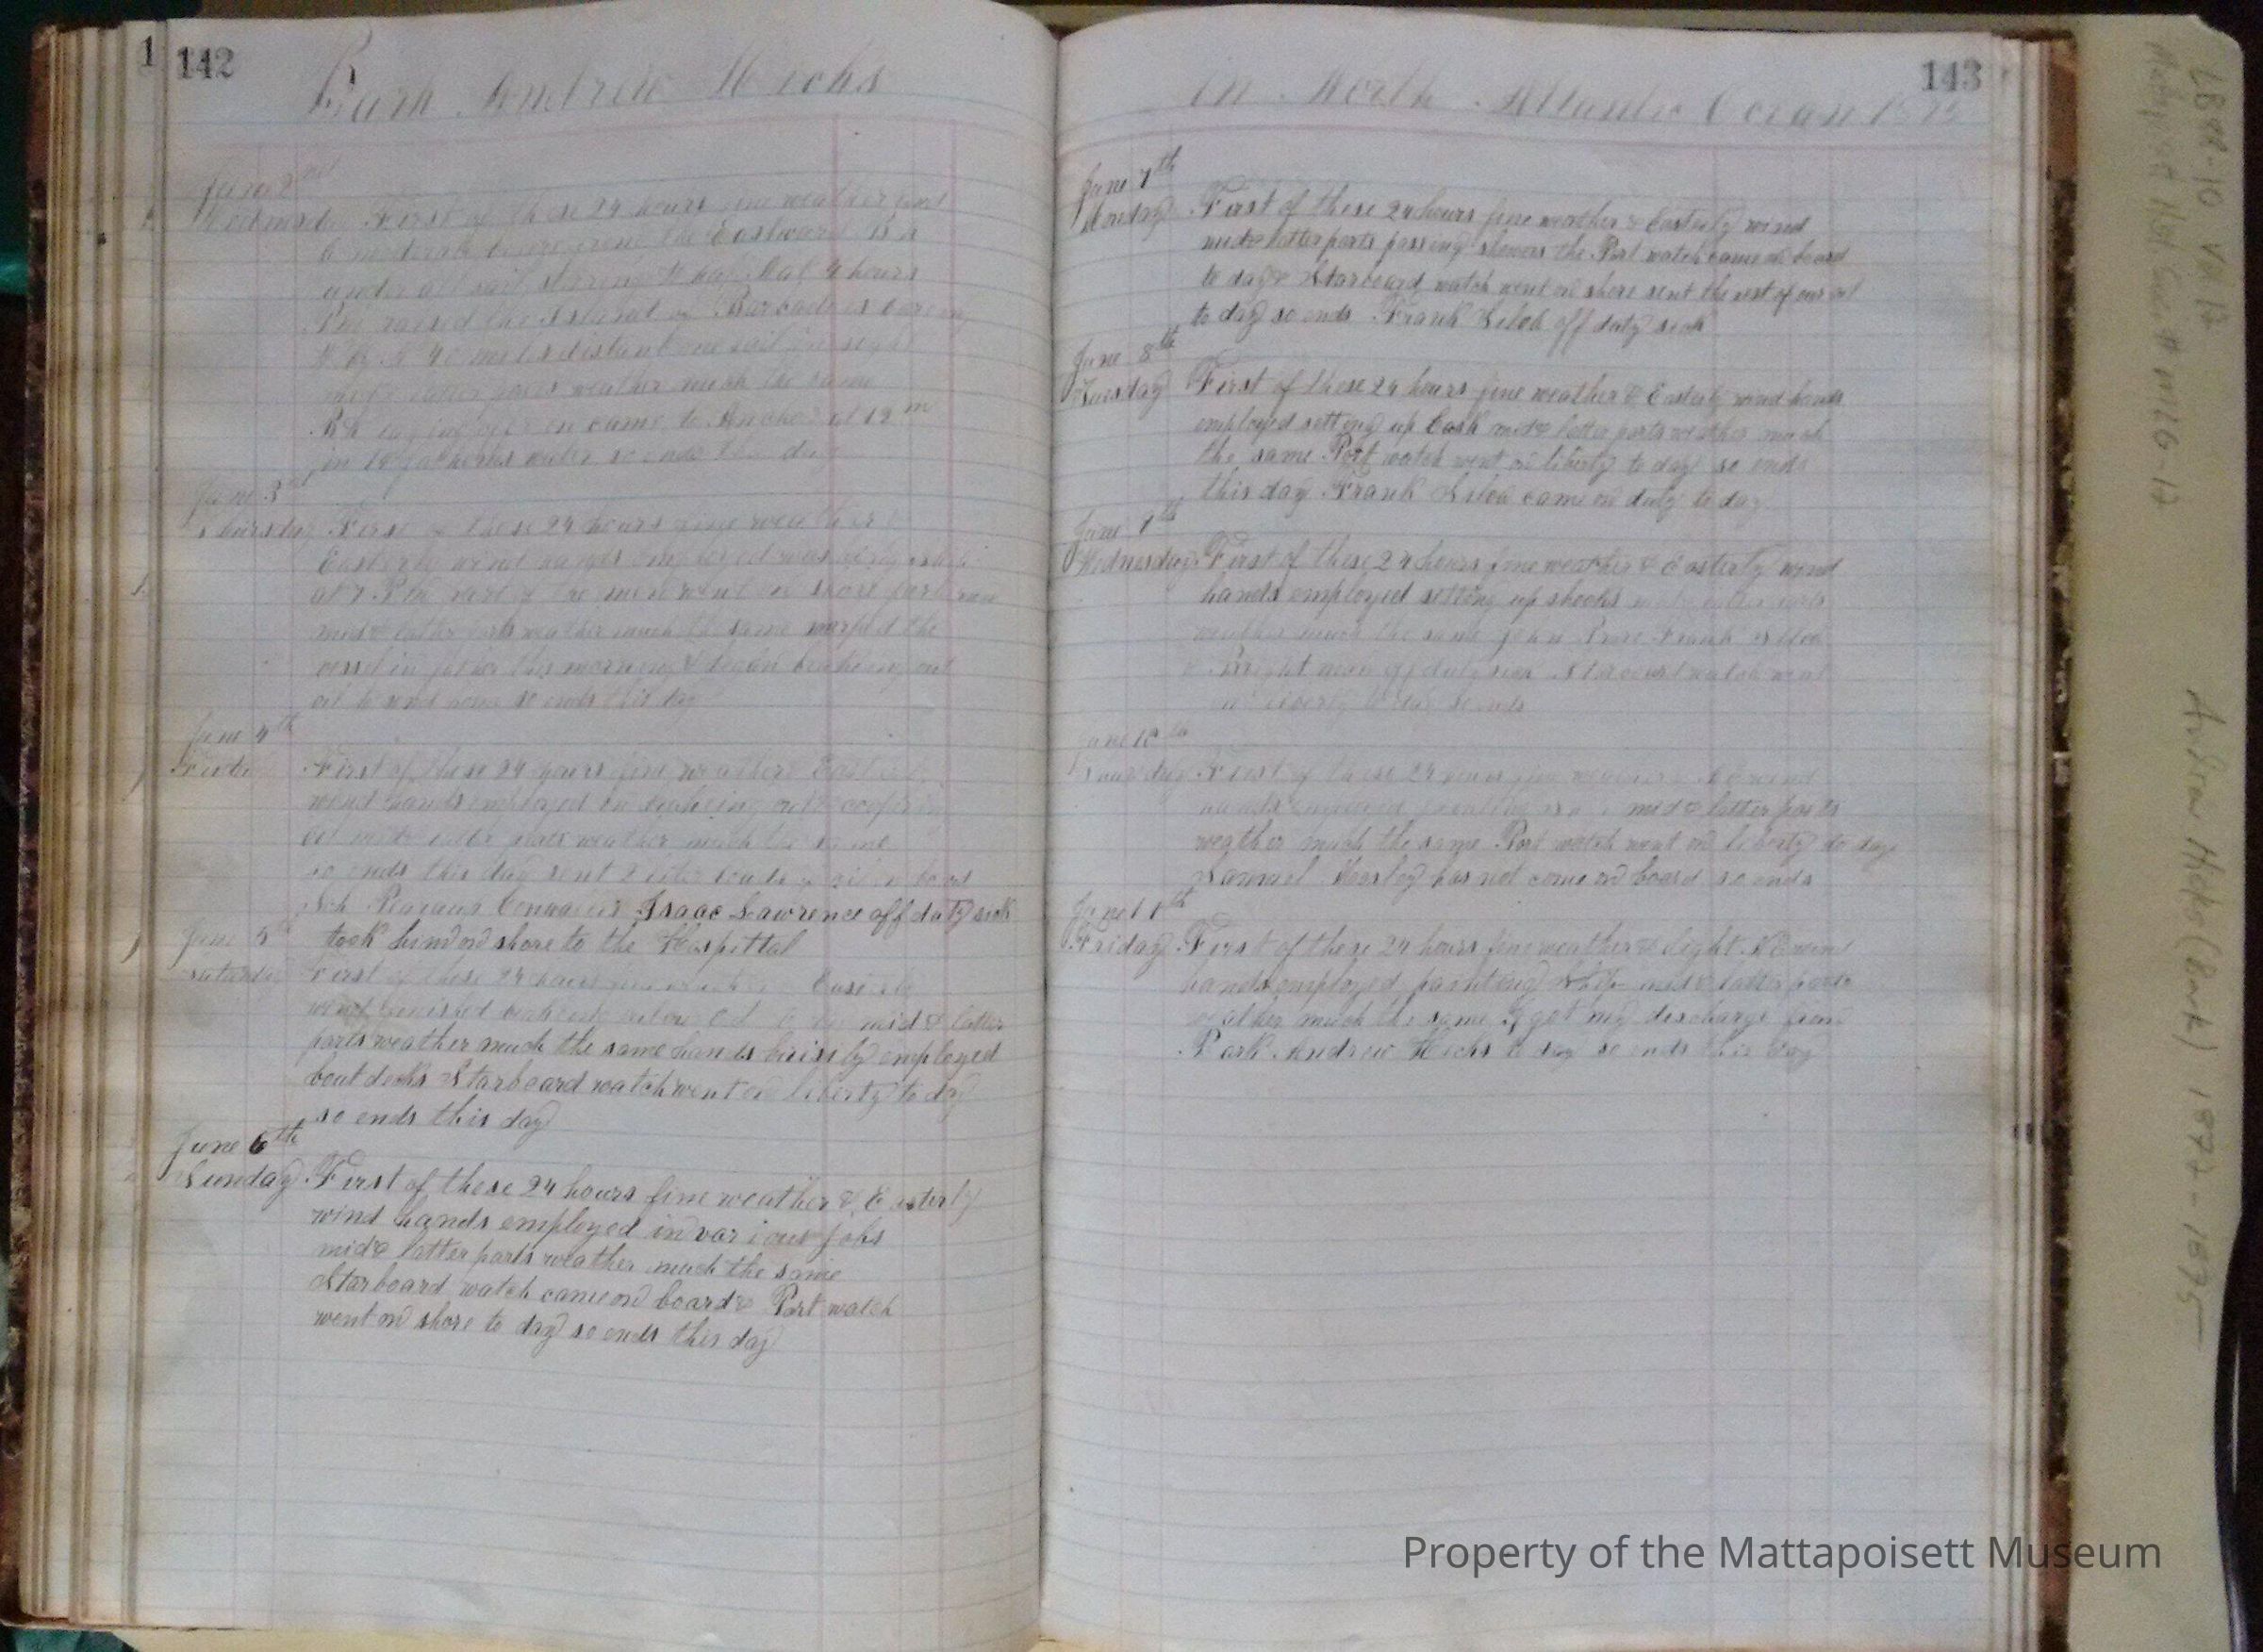 142
Bark Andrew Hicks
June 2nd
Wednesday First of these 24 hours fine weather and
a moderate breeze from the Eastward Bk
under all sail at 4 hours
PM raised the Island of Barbadoes bearing
N by N 40 miles distant one sail in sight
mid & latter parts weather much the same
came to Anchor at 12 m
in fathoms water so ends this day
June 3
Thursday First of these 24 hours fine weather &
Easterly wind hands employed
at 7 PM part of the men went on shore
mid & latter parts weather much the same warped the
vessel in this morning & began breaking out
oil to send home so ends this day
June 4th
Friday First of these 24 hours fine weather Easterly
wind hands employed in breaking out & coopering
oil mid & latter parts weather much the same
so ends this day sent oil on board
Sch Isaac Lawrence off duty sick
took him on shore to the Hospittal
June 5
Saturday First of these 24 hours fine weather Easterly
wind finished breaking out oil mid & latter
parts weather much the same hands buisily employed
bout decks Starboard watch went on liberty to day
so ends this day
June 6th
Sunday First of these 24 hours fine weather & Easterly
wind hands employed in various jobs
mid & latter parts weather much the same
Starboard watch came on board & Port watch
went on shore to day so ends this day
143
in North Atlantic Ocean 1875
June 7th
Monday First of these 24 hours fine weather & Easterly wind
mid & latter parts passing showers the Port watch came on board
to day & Starboard watch went on shore sent the rest of our oil
to day so ends Frank Silva off duty sick
June 8th
Tuesday First of these 24 hours fine weather & Easterly wind hands
employed setting up Cask mid & latter parts weather much
the same Port watch went on liberty to day so ends
this day Frank Silva came on duty to day
June 9th
Wednesday First of these 24 hours fine weather & Easterly wind
hands employed setting up shooks mid & latter parts
weather much the same John Frank Silva
& Bright off duty sick Starboard watch went
on liberty to day so ends
June 10th
Thursday First of these 24 hours fine weather & NE wind
hands employed painting ship mid & latter parts
weather much the same Port watch went on liberty to day
Samuel has not come on board so ends
June 11th
Friday First of these 24 hours fine weather & light NE wind
hands employed painting ship mid & latter parts
weather much the same I got my discharge from
Bark Andrew Hicks to day so ends this day
Andrew Hicks (Bark) 1872-1875
Property of the Mattapoisett Museum